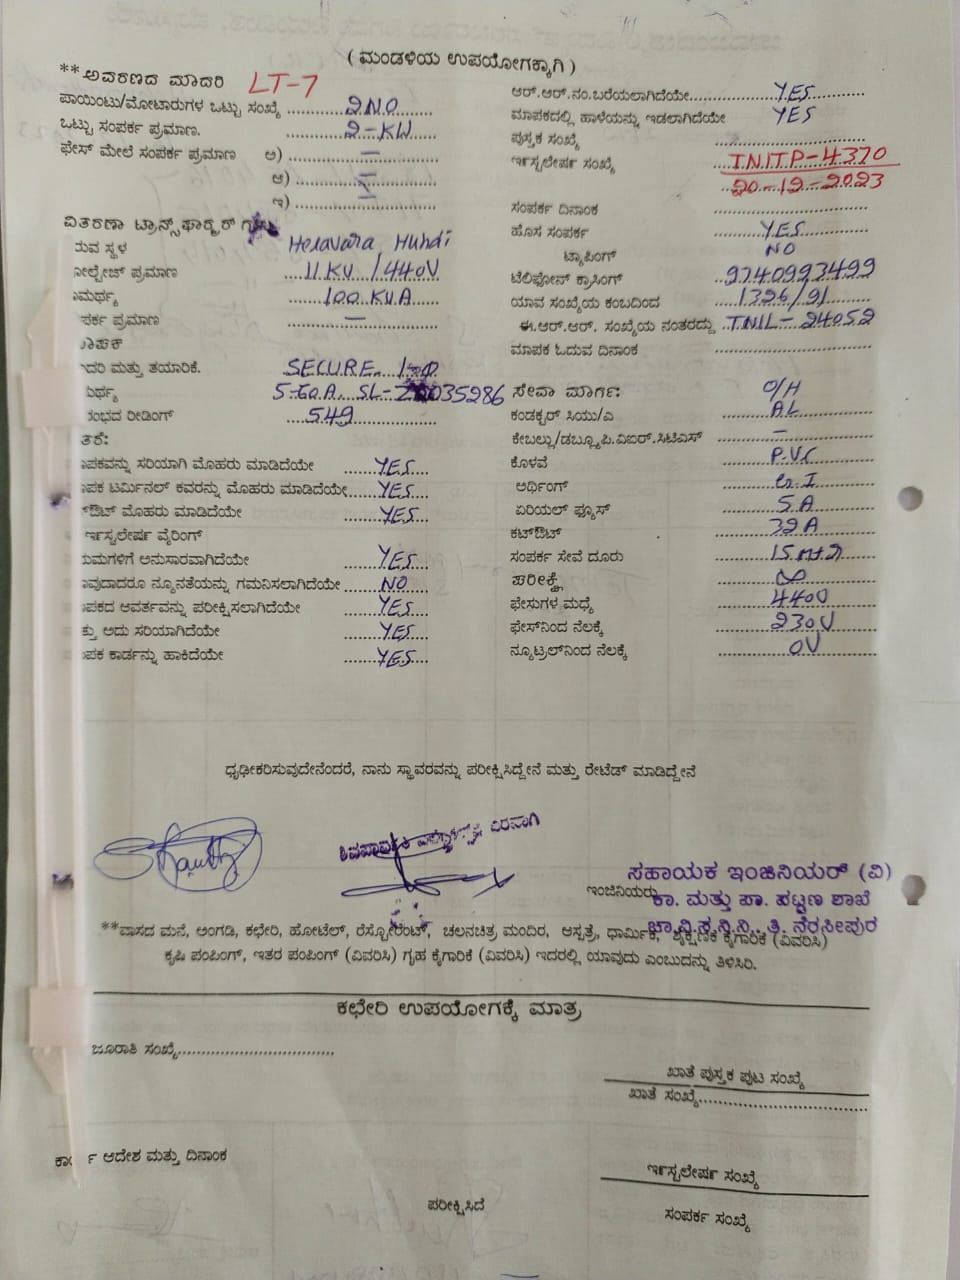 ( ಮಂಡಳಿಯ ಉಪಯೋಗಕ್ಕಾಗಿ )
**ಆವರಣದ ಮಾದರಿ LT-7
ಪಾಯಿಂಟು/ಮೋಟಾರುಗಳ ಒಟ್ಟು ಸಂಖ್ಯೆ 2NO
ಒಟ್ಟು ಸಂಪರ್ಕ ಪ್ರಮಾಣ. 2-KW
ಫೇಸ್ ಮೇಲೆ ಸಂಪರ್ಕ ಪ್ರಮಾಣ ಅ) —
ಆ) —
ಇ) —
ವಿತರಣಾ ಟ್ರಾನ್ಸ್‌ಫಾರ್ಮರ್
ರುವ ಸ್ಥಳ Heravara Hundi
ೋಲ್ಟೇಜ್ ಪ್ರಮಾಣ 11 KV / 440V
ಾಮರ್ಥ್ಯ 100 KVA
ಪರ್ಕ ಪ್ರಮಾಣ —
ಾಪಕ
ಾದರಿ ಮತ್ತು ತಯಾರಿಕೆ. SECURE
ಮರ್ಥ್ಯ 5-60A SL-
ರಂಭದ ರೀಡಿಂಗ್ 549
ತರೆ:
ಾಪಕವನ್ನು ಸರಿಯಾಗಿ ಮೊಹರು ಮಾಡಿದೆಯೇ YES
ಾಪಕ ಟರ್ಮಿನಲ್ ಕವರನ್ನು ಮೊಹರು ಮಾಡಿದೆಯೇ YES
ಟ್‌ಔಟ್ ಮೊಹರು ಮಾಡಿದೆಯೇ YES
ಇನ್‌ಸ್ಟಲೇಷನ್ ವೈರಿಂಗ್
ಯಮಗಳಿಗೆ ಅನುಸಾರವಾಗಿದೆಯೇ YES
ಾವುದಾದರೂ ನ್ಯೂನತೆಯನ್ನು ಗಮನಿಸಲಾಗಿದೆಯೇ NO
ಾಪಕದ ಆವರ್ತವನ್ನು ಪರೀಕ್ಷಿಸಲಾಗಿದೆಯೇ YES
ತ್ತು ಅದು ಸರಿಯಾಗಿದೆಯೇ YES
ಾಪಕ ಕಾರ್ಡನ್ನು ಹಾಕಿದೆಯೇ YES
ಆರ್.ಆರ್.ನಂ.ಬರೆಯಲಾಗಿದೆಯೇ YES
ಮಾಪಕದಲ್ಲಿ ಹಾಳೆಯನ್ನು ಇಡಲಾಗಿದೆಯೇ YES
ಪುಸ್ತಕ ಸಂಖ್ಯೆ
ಇನ್‌ಸ್ಟಲೇಷನ್ ಸಂಖ್ಯೆ TNITP-4370
20-12-2023
ಸಂಪರ್ಕ ದಿನಾಂಕ
ಹೊಸ ಸಂಪರ್ಕ YES
ಟ್ಯಾಪಿಂಗ್ NO
ಟೆಲಿಫೋನ್ ಕ್ರಾಸಿಂಗ್ 9740993499
ಯಾವ ಸಂಖ್ಯೆಯ ಕಂಬದಿಂದ 1326/91
ಈ.ಆರ್.ಆರ್. ಸಂಖ್ಯೆಯ ನಂತರದ್ದು TNIL-24052
ಮಾಪಕ ಓದುವ ದಿನಾಂಕ
ಸೇವಾ ಮಾರ್ಗ: O/H
ಕಂಡಕ್ಟರ್ ಸಿಯು/ಎ AL
ಕೇಬಲ್ಲು/ಡಬ್ಲ್ಯೂ.ಪಿ.ವಿಐರ್.ಸಿಟಿಎಸ್ —
ಕೊಳವೆ P.V.C
ಅರ್ಥಿಂಗ್ G.I
ಏರಿಯಲ್ ಫ್ಯೂಸ್ 5A
ಕಟ್‌ಔಟ್ 32A
ಸಂಪರ್ಕ ಸೇವೆ ದೂರು
ಪರೀಕ್ಷೆ
ಫೇಸುಗಳ ಮಧ್ಯೆ 440V
ಫೇಸ್‌ನಿಂದ ನೆಲಕ್ಕೆ 230V
ನ್ಯೂಟ್ರಲ್‌ನಿಂದ ನೆಲಕ್ಕೆ 0V
ಧೃಢೀಕರಿಸುವುದೇನೆಂದರೆ, ನಾನು ಸ್ಥಾವರವನ್ನು ಪರೀಕ್ಷಿಸಿದ್ದೇನೆ ಮತ್ತು ರೇಟೆಡ್ ಮಾಡಿದ್ದೇನೆ
ಸಹಾಯಕ ಇಂಜಿನಿಯರ್ (ವಿ)
ಇಂಜಿನಿಯರು
ಕಾ. ಮತ್ತು ಪಾ. ಪಟ್ಟಣ ಶಾಖೆ
ಚಾ.ವಿ.ಸ.ನಿ.ನಿ., ತಿ. ನರಸೀಪುರ
**ವಾಸದ ಮನೆ, ಅಂಗಡಿ, ಕಛೇರಿ, ಹೋಟೆಲ್, ರೆಸ್ಟೋರೆಂಟ್, ಚಲನಚಿತ್ರ ಮಂದಿರ, ಆಸ್ಪತ್ರೆ, ಧಾರ್ಮಿಕ, ಶೈಕ್ಷಣಿಕ ಕೈಗಾರಿಕೆ (ವಿವರಿಸಿ)
ಕೃಷಿ ಪಂಪಿಂಗ್, ಇತರ ಪಂಪಿಂಗ್ (ವಿವರಿಸಿ) ಗೃಹ ಕೈಗಾರಿಕೆ (ವಿವರಿಸಿ) ಇದರಲ್ಲಿ ಯಾವುದು ಎಂಬುದನ್ನು ತಿಳಿಸಿರಿ.
ಕಛೇರಿ ಉಪಯೋಗಕ್ಕೆ ಮಾತ್ರ
ಜೂರಾತಿ ಸಂಖ್ಯೆ
ಖಾತೆ ಪುಸ್ತಕ ಪುಟ ಸಂಖ್ಯೆ
ಖಾತೆ ಸಂಖ್ಯೆ
ಆದೇಶ ಮತ್ತು ದಿನಾಂಕ
ಇನ್‌ಸ್ಟಲೇಷನ್ ಸಂಖ್ಯೆ
ಪರೀಕ್ಷಿಸಿದೆ
ಸಂಪರ್ಕ ಸಂಖ್ಯೆ